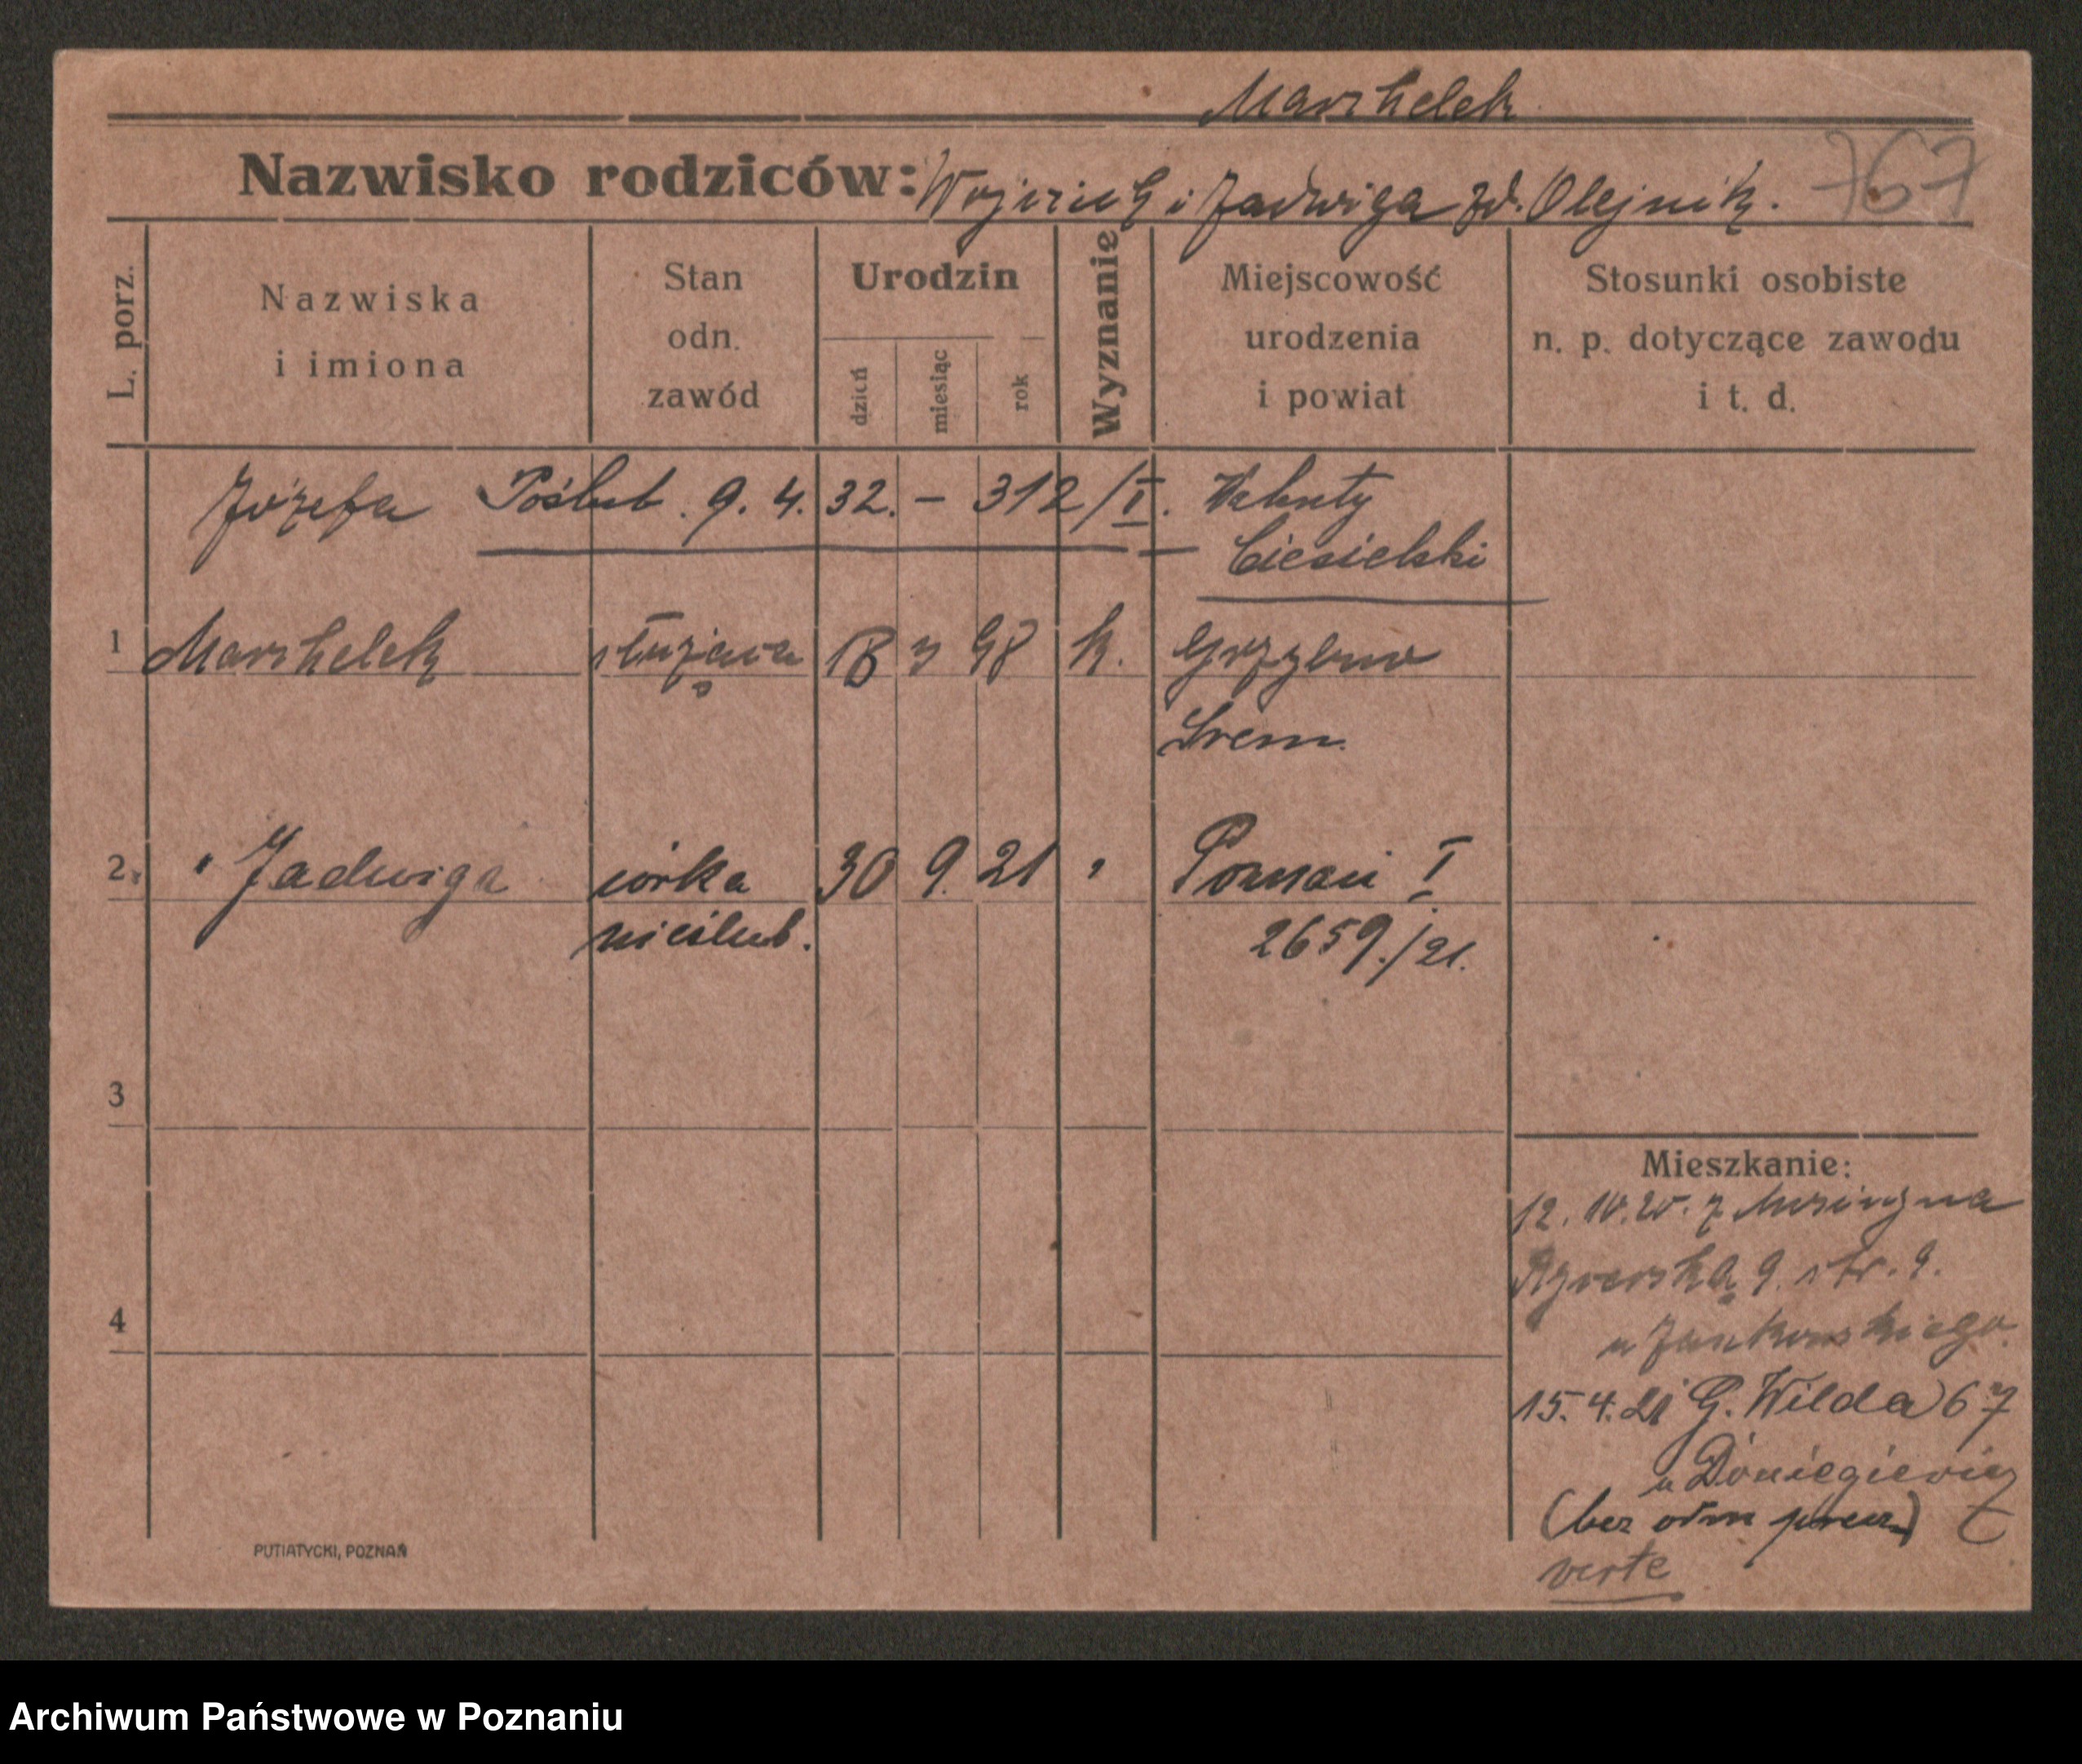 Marszhelek
Nazwisko rodziców: Wojciech i Jadwiga zd. Olejnik.
767
L. porz.
Nazwiska
i imiona
Stan
odn.
zawód
Urodzin
dzień
miesiąc
rok
Wyznanie
Miejscowość
urodzenia
i powiat
Stosunki osobiste
n. p. dotyczące zawodu
i t. d.
Józefa Poślub. 9. 4. 32. – 312/I. Walenty
Ciesielski
1 służąca 18 3 98 k.
Śrem
2. " Jadwiga córka 30 9. 21 " Poznań I
nieślub. 2659./21.
3
Mieszkanie:
12. 10. 20. z na
4
9. str. 9.
u Jankowskiego
15. 4. 21 G. Wilda 67
u
(bez )
verte
PUTIATYCKI, POZNAŃ
Archiwum Państwowe w Poznaniu